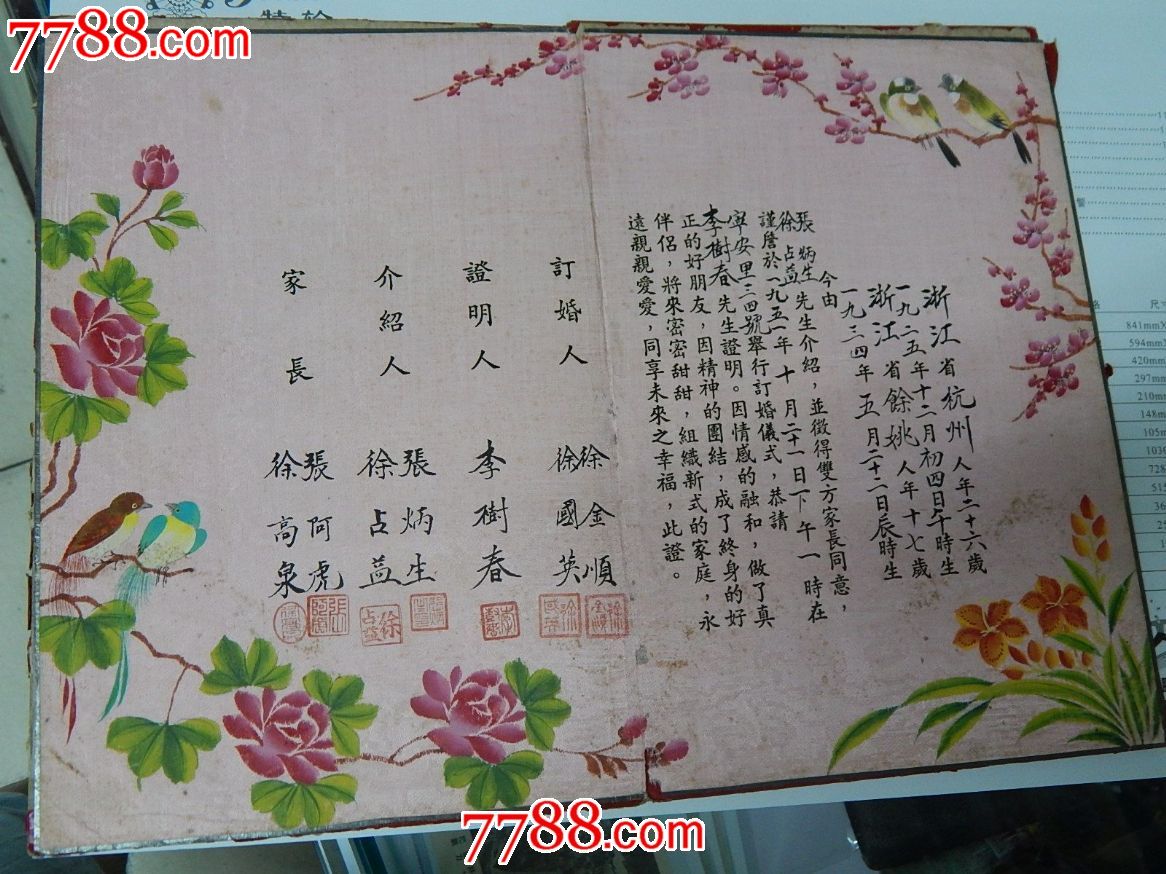 7788.com
7788.com
7788.com
浙江省杭州人年二十六歲
一九二五年十二月初四日午時生
浙江省餘姚人年十七歲
一九三四年五月二十二日辰時生
今由
張炳生
徐占益先生介紹，並徵得雙方家長同意，
謹詹於一九五一年十月二十一日下午一時在
寧安里三四號舉行訂婚儀式，恭請
李樹春先生證明。因情感的融和，做了真
正的好朋友，因精神的團結，成了終身的好
伴侶，將來密密甜甜，組織新式的家庭，永
遠親親愛愛，同享未來之幸福，此證。
訂婚人 徐金順
徐國英
證明人 李樹春
介紹人 張炳生
徐占益
家長 張阿虎
徐高泉
841mm
594mm
420mm
297mm
210mm
148m
105m